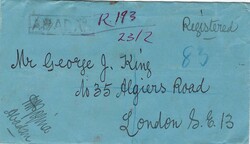 R 193
23/2
Registered
85
Mr George J. King
No 35 Algiers Road
London S.E.13